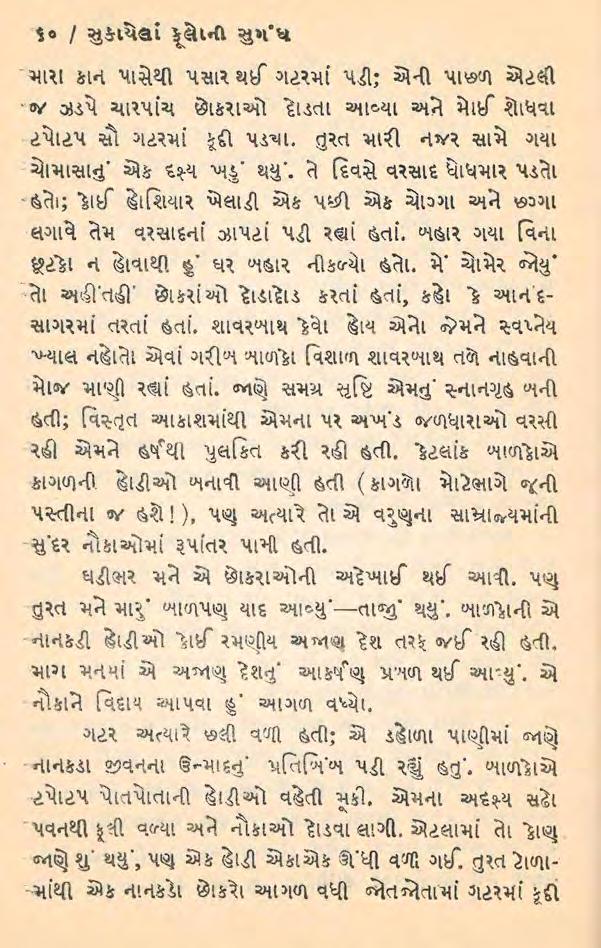 ૬૦ / સુકાયેલાં ફૂલોની સુગંધ
મારા કાન પાસેથી પસાર થઈ ગટરમાં પડી; એની પાછળ એટલી
જ ઝડપે ચારપાંચ છોકરાઓ દોડતા આવ્યા અને મોઈ શોધવા
ટપોટપ સૌ ગટરમાં કૂદી પડચા. તુરત મારી નજર સામે ગયા
ચોમાસાનું એક દૃશ્ય ખડું થયું. તે દિવસે વરસાદ ધોધમાર પડતો
હતો; કોઈ હોશિયાર ખેલાડી એક પછી એક ચોગ્ગા અને છગ્ગા
લગાવે તેમ વરસાદનાં ઝાપટાં પડી રહ્યાં હતાં. બહાર ગયા વિના
છૂટકો ન હોવાથી હું ઘર બહાર નીકળ્યો હતો. મેં ચોમેર જોયું
તો અહીંતહીં છોકરાંઓ દોડાદોડ કરતાં હતાં, કહો કે આનંદ-
સાગરમાં તરતાં હતાં. શાવરબાથ કેવો હોય એનો જેમને સ્વપ્નેય
ખ્યાલ નહોતો એવાં ગરીબ બાળકો વિશાળ શાવરબાથ તળે નાહવાની
મોજ માણી રહ્યાં હતાં. જાણે સમગ્ર સૃષ્ટિ એમનું સ્નાનગૃહ બની
હતી; વિસ્તૃત આકાશમાંથી એમના પર અખંડ જળધારાઓ વરસી
રહી એમને હર્ષથી પુલકિત કરી રહી હતી. કેટલાંક બાળકોએ
કાગળની હોડીઓ બનાવી આણી હતી ( કાગળો મોટેભાગે જૂની
પસ્તીના જ હશે ! ), પણ અત્યારે તો એ વરુણના સામ્રાજ્યમાંની
સુંદર નૌકાઓમાં રૂપાંતર પામી હતી.
ઘડીભર મને એ છોકરાઓની અદેખાઈ થઈ આવી. પણ
તુરત મને મારું બાળપણ યાદ આવ્યું—તાજું થયું. બાળકોની એ
નાનકડી હોડીઓ કોઈ રમણીય અજાણ દેશ તરફ જઈ રહી હતી.
મારા મનમાં એ અજાણ દેશનું આકર્ષણ પ્રબળ થઈ આવ્યું. એ
નૌકાને વિદાય આપવા હું આગળ વધ્યો.
ગટર અત્યારે છલી વળી હતી; એ ડહોળા પાણીમાં જાણે
નાનકડા જીવનના ઉન્માદનું પ્રતિબિંબ પડી રહ્યું હતું. બાળકોએ
ટપોટપ પોતપોતાની હોડીઓ વહેતી મૂકી. એમના અદૃશ્ય સઢો
પવનથી ફૂલી વળ્યા અને નૌકાઓ દોડવા લાગી. એટલામાં તો કોણ
જાણે શું થયું, પણ એક હોડી એકાએક ઊંધી વળી ગઈ. તુરત ટોળા-
માંથી એક નાનકડો છોકરો આગળ વધી જોતજોતામાં ગટરમાં કૂદી